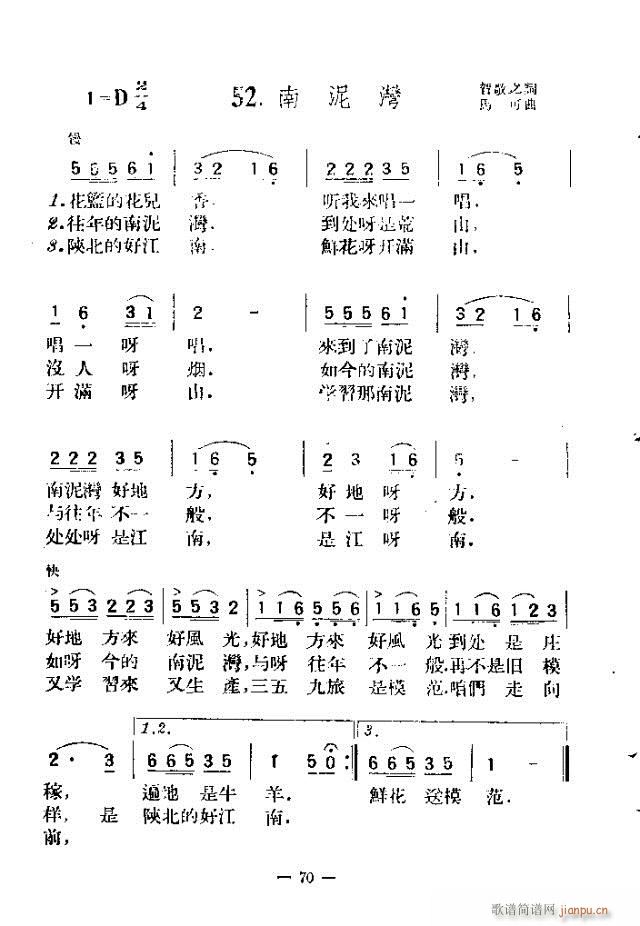 1=D 2/4
52. 南 泥 灣
賀敬之詞
馬 可曲
慢
5 5 5 6 1 | 3 2 1 6 | 2 2 2 3 5 | 1 6 5 |
1.花籃的花兒 香. 听我來唱一 唱.
2.往年的南泥 灣. 到处呀是荒 山,
3.陝北的好江 南. 鮮花呀开滿 山,
1 6 3 1 | 2 - | 5 5 5 6 1 | 3 2 1 6 |
唱一 呀 唱. 來到了南泥 灣,
沒人 呀 烟. 如今的南泥 灣,
开滿 呀 山. 学習那南泥 灣,
2 2 2 3 5 | 1 6 5 | 2 3 1 6 | 5 - |
南泥灣 好地 方, 好 地 呀 方.
与往年不一 般, 不 一 呀 般.
处处呀 是江 南, 是江 呀 南.
快
5 5 3 2 2 3 | 5 5 3 2 | 1 1 6 5 5 6 | 1 1 6 5 | 1 1 6 1 2 3 |
好地 方來 好風 光,好地 方來 好風 光 到处 是 庄
如呀 今的 南泥 灣,与呀 往年 不一 般.再不是旧 模
又学 習來 又生 產,三五 九旅 是模 范.咱們 走向
1.2.
3.
2 · 3 | 6 6 5 3 5 | 1 5 0 :| 6 6 5 3 5 | 1 -
稼, 遍地 是牛 羊. 鮮花 送模 范.
样, 是 陝北的好江 南.
前,
— 70 —
歌谱简谱网
jianpu.cn